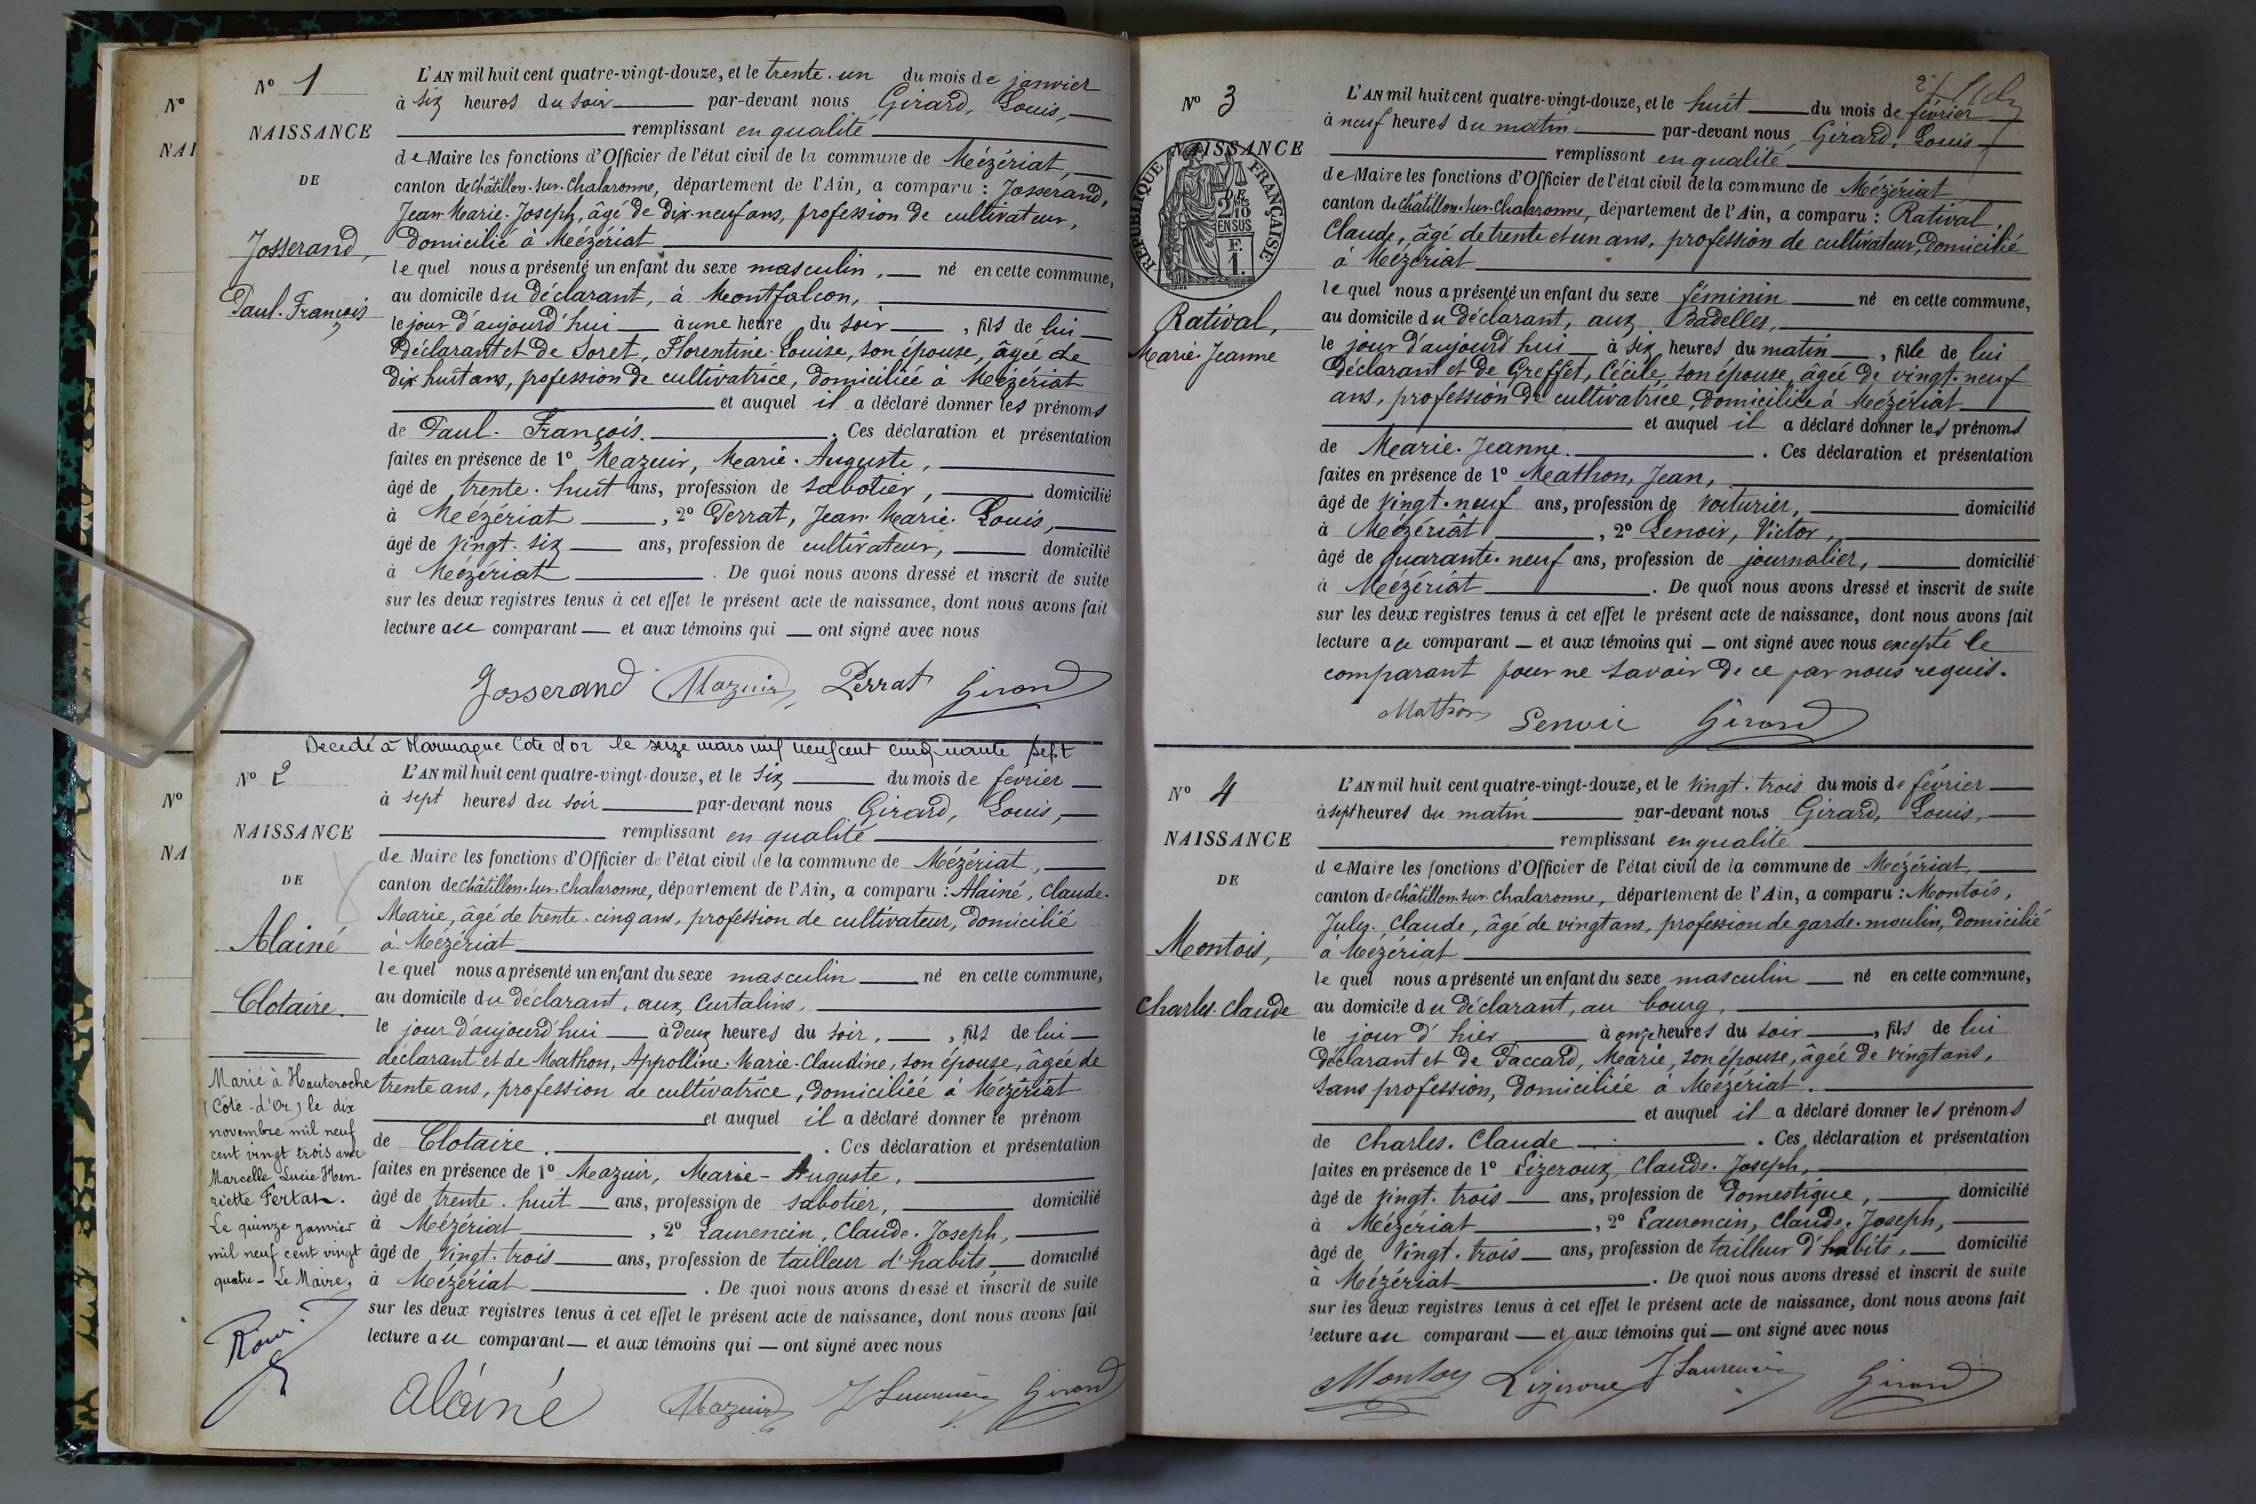 Nº 1
NAISSANCE
DE
Josserand,
Paul-François
L'AN mil huit cent quatre-vingt-douze, et le trente-un du mois de janvier
à six heures du soir par-devant nous Girard, Louis,
remplissant en qualité
de Maire les fonctions d'Officier de l'état civil de la commune de Mézériat,
canton de Châtillon-sur-Chalaronne, département de l'Ain, a comparu : Josserand,
Jean-Marie-Joseph, âgé de dix-neuf ans, profession de cultivateur,
domicilié à Mézériat
lequel nous a présenté un enfant du sexe masculin, né en cette commune,
au domicile du déclarant, à Montfalcon,
le jour d'aujourd'hui à une heure du soir, fils de lui
déclarant et de Soret, Florentine-Louise, son épouse, âgée de
dix huit ans, profession de cultivatrice, domiciliée à Mézériat
et auquel il a déclaré donner les prénoms
de Paul-François. Ces déclaration et présentation
faites en présence de 1º Mazuir, Marie-Auguste,
âgé de trente-huit ans, profession de sabotier, domicilié
à Mézériat, 2º Perrat, Jean-Marie-Louis,
âgé de vingt-six ans, profession de cultivateur, domicilié
à Mézériat. De quoi nous avons dressé et inscrit de suite
sur les deux registres tenus à cet effet le présent acte de naissance, dont nous avons fait
lecture au comparant et aux témoins qui ont signé avec nous
Josserand Mazuir Perrat Girard
Décédé à Marmagne Côte d'or le seize mars mil neuf cent cinquante sept
Nº 2
NAISSANCE
DE
Alainé
Clotaire.
Marié à Hauteroche
(Côte-d'Or) le dix
novembre mil neuf
cent vingt trois avec
Marcelle Lucie Hen-
riette Fertat.
Le quinze janvier
mil neuf cent vingt
quatre - Le Maire,
L'AN mil huit cent quatre-vingt-douze, et le six du mois de février
à sept heures du soir par-devant nous Girard, Louis,
remplissant en qualité
de Maire les fonctions d'Officier de l'état civil de la commune de Mézériat,
canton de Châtillon-sur-Chalaronne, département de l'Ain, a comparu : Alainé, Claude-
Marie, âgé de trente-cinq ans, profession de cultivateur, domicilié
à Mézériat
lequel nous a présenté un enfant du sexe masculin né en cette commune,
au domicile du déclarant, aux Curtalins,
le jour d'aujourd'hui à deux heures du soir, fils de lui
déclarant et de Mathon, Appolline-Marie-Claudine, son épouse, âgée de
trente ans, profession de cultivatrice, domiciliée à Mézériat
et auquel il a déclaré donner le prénom
de Clotaire. Ces déclaration et présentation
faites en présence de 1º Mazuir, Marie-Auguste,
âgé de trente-huit ans, profession de sabotier, domicilié
à Mézériat, 2º Laurencin, Claude-Joseph,
âgé de vingt-trois ans, profession de tailleur d'habits domicilié
à Mézériat. De quoi nous avons dressé et inscrit de suite
sur les deux registres tenus à cet effet le présent acte de naissance, dont nous avons fait
lecture au comparant et aux témoins qui ont signé avec nous
Alainé Mazuir J Laurencin Girard
Nº 3
NAISSANCE
RÉPUBLIQUE FRANÇAISE
2 DES 10 EN SUS
F. 1.
Ratival,
Marie-Jeanne
L'AN mil huit cent quatre-vingt-douze, et le huit du mois de février
à neuf heures du matin par-devant nous Girard, Louis
remplissant en qualité
de Maire les fonctions d'Officier de l'état civil de la commune de Mézériat
canton de Châtillon-sur-Chalaronne, département de l'Ain, a comparu : Ratival,
Claude, âgé de trente et un ans, profession de cultivateur, domicilié
à Mézériat
lequel nous a présenté un enfant du sexe féminin né en cette commune,
au domicile du déclarant, aux Badelles,
le jour d'aujourd'hui à six heures du matin, fille de lui
déclarant et de Greffet, Cécile, son épouse, âgée de vingt-neuf
ans, profession de cultivatrice, domiciliée à Mézériat
et auquel il a déclaré donner les prénoms
de Marie-Jeanne. Ces déclaration et présentation
faites en présence de 1º Mathon, Jean,
âgé de vingt-neuf ans, profession de voiturier, domicilié
à Mézériat, 2º Lenoir, Victor,
âgé de quarante-neuf ans, profession de journalier, domicilié
à Mézériat. De quoi nous avons dressé et inscrit de suite
sur les deux registres tenus à cet effet le présent acte de naissance, dont nous avons fait
lecture au comparant et aux témoins qui ont signé avec nous excepté le
comparant pour ne savoir de ce par nous requis.
Mathon Lenoir Girard
Nº 4
NAISSANCE
DE
Montois,
Charles-Claude
L'AN mil huit cent quatre-vingt-douze, et le vingt-trois du mois de février
à sept heures du matin par-devant nous Girard, Louis,
remplissant en qualité
de Maire les fonctions d'Officier de l'état civil de la commune de Mézériat,
canton de Châtillon-sur-Chalaronne, département de l'Ain, a comparu : Montois,
Jules-Claude, âgé de vingt ans, profession de garde-moulin, domicilié
à Mézériat
lequel nous a présenté un enfant du sexe masculin né en cette commune,
au domicile du déclarant, au bourg,
le jour d'hier à onze heures du soir, fils de lui
déclarant et de Paccard, Marie, son épouse, âgée de vingt ans,
sans profession, domiciliée à Mézériat.
et auquel il a déclaré donner les prénoms
de Charles-Claude. Ces déclaration et présentation
faites en présence de 1º Lizeroux, Claude-Joseph,
âgé de vingt-trois ans, profession de domestique, domicilié
à Mézériat, 2º Laurencin, Claude-Joseph,
âgé de vingt-trois ans, profession de tailleur d'habits, domicilié
à Mézériat. De quoi nous avons dressé et inscrit de suite
sur les deux registres tenus à cet effet le présent acte de naissance, dont nous avons fait
lecture au comparant et aux témoins qui ont signé avec nous
Montoy Lizeroux J Laurencin Girard